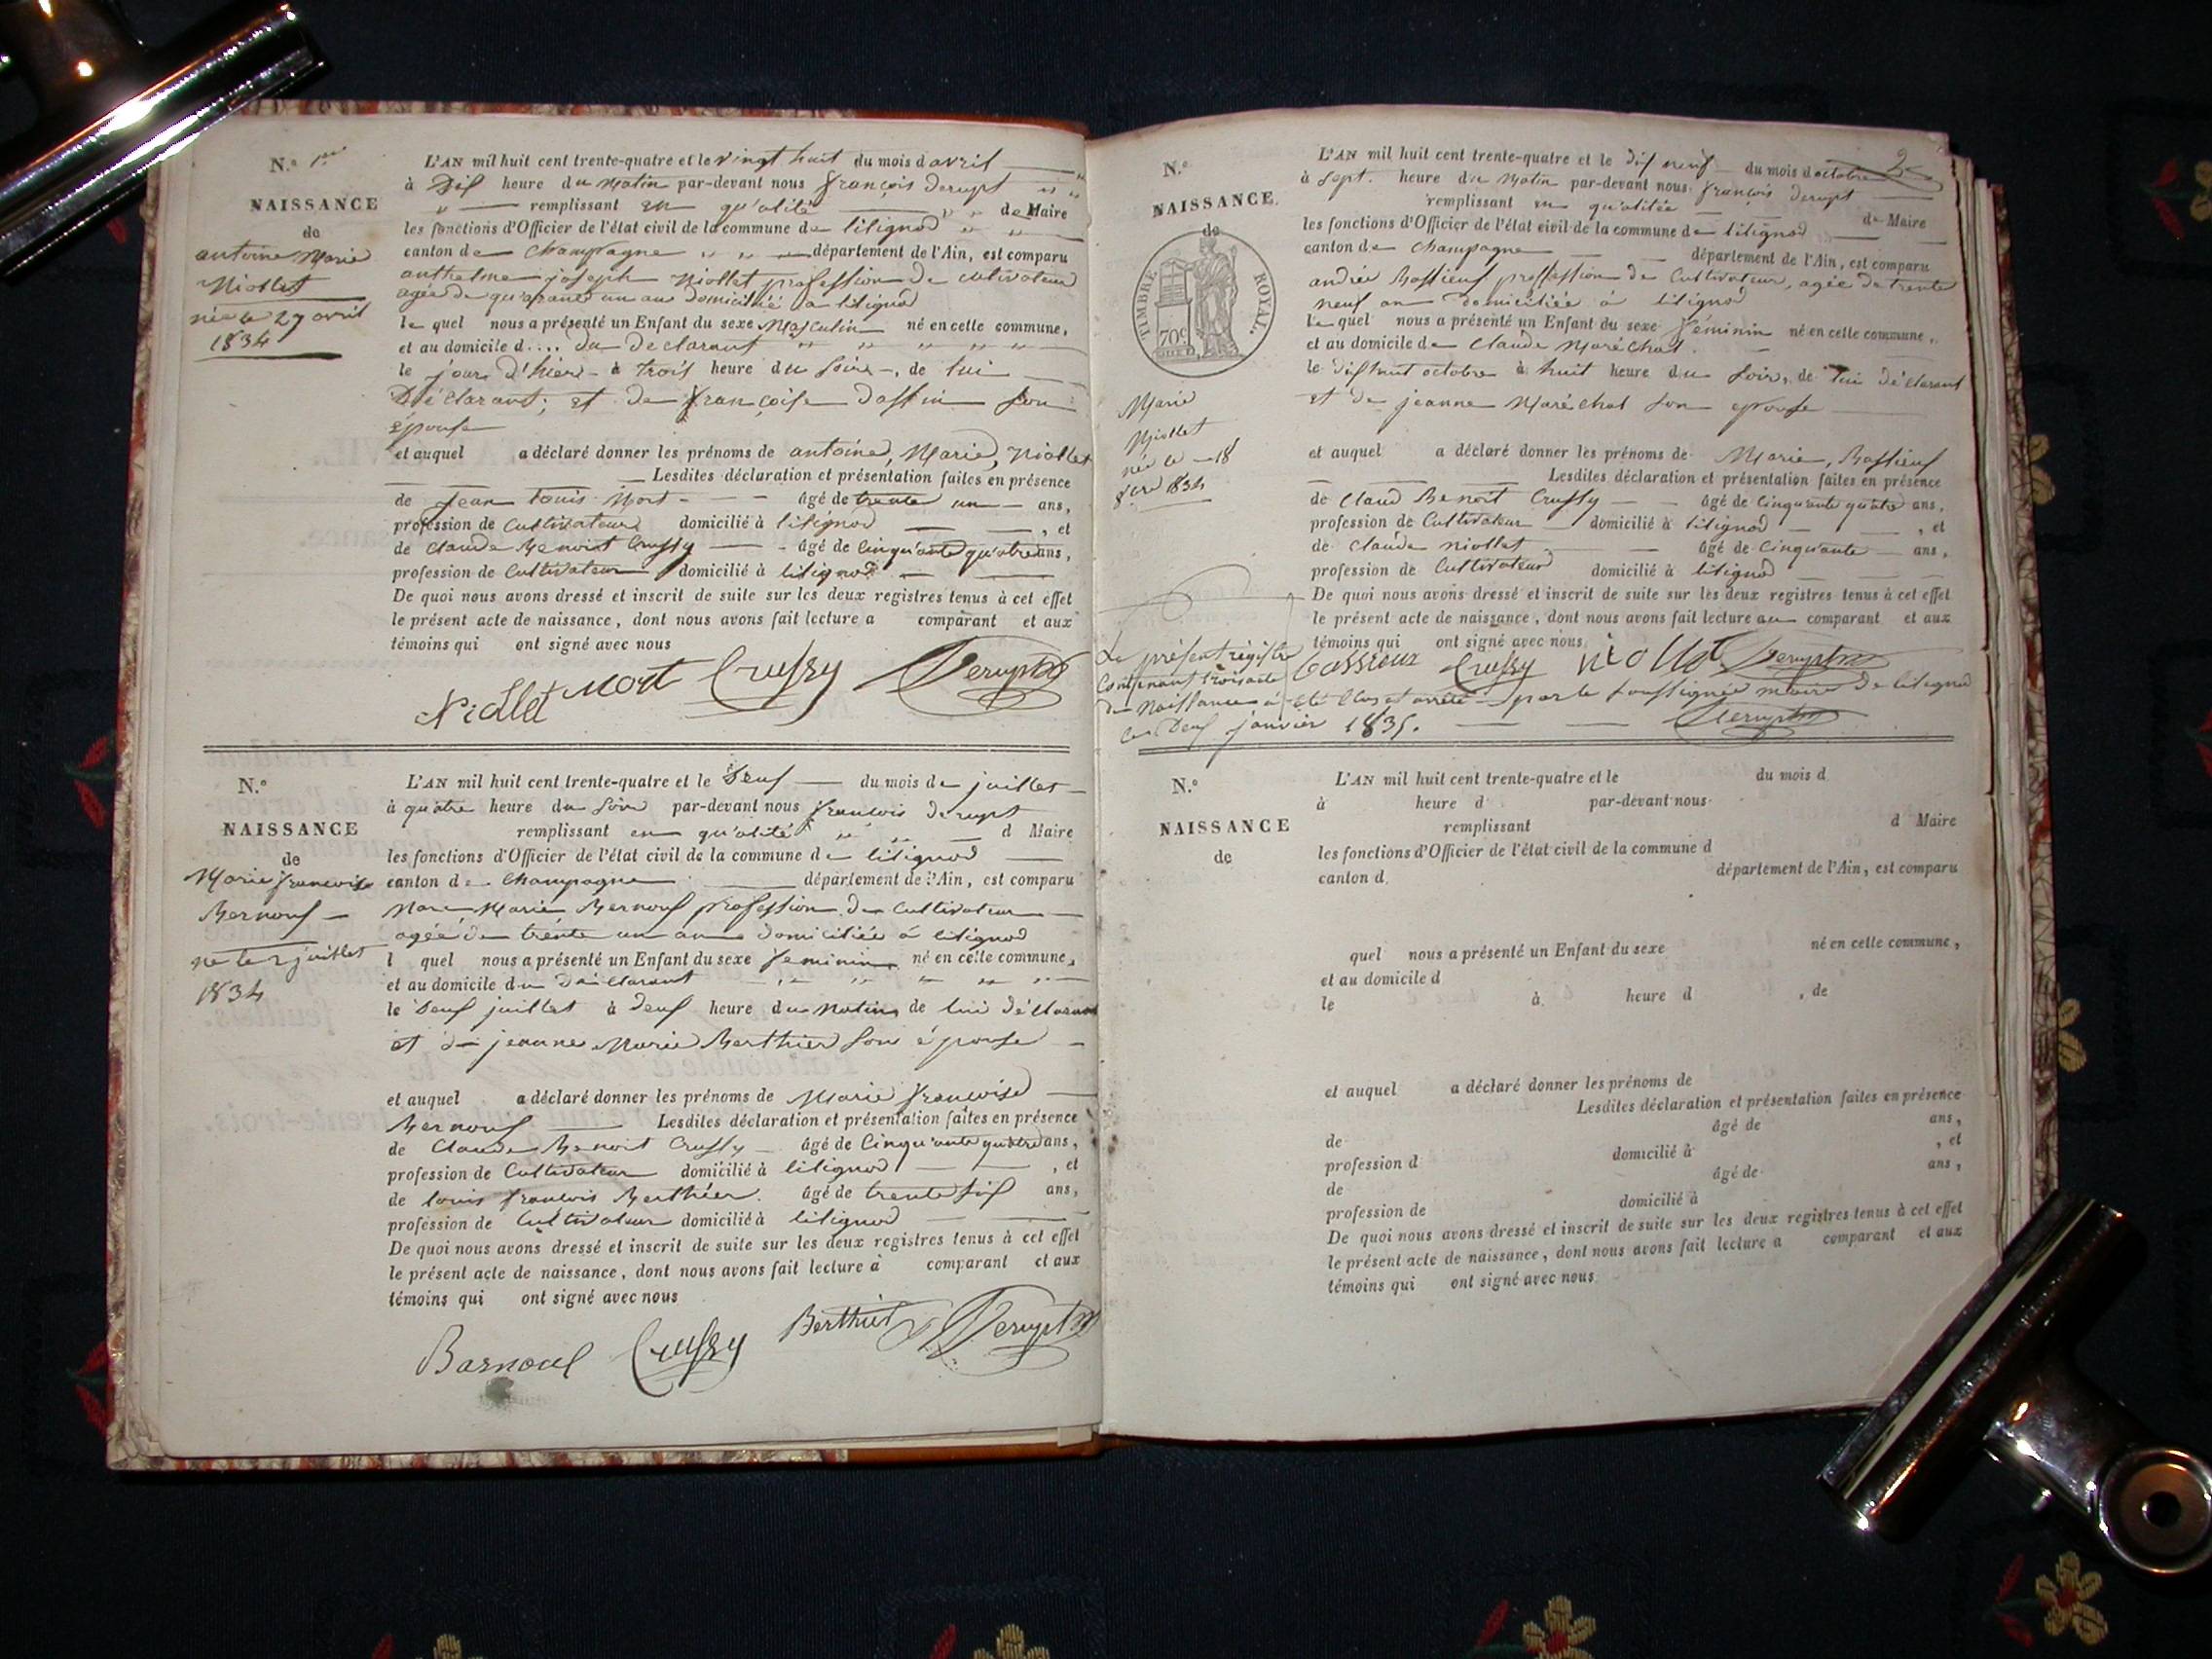 N.o 1er
NAISSANCE
de
antoine Marie
Niollet
née le 27 avril
1834
L'AN mil huit cent trente-quatre et le vingt huit du mois d avril
à Dix heure du Matin par-devant nous françois derupt
remplissant en qu'alité de Maire
les fonctions d'Officier de l'état civil de la commune de litignod
canton de Champagne département de l'Ain, est comparu
anthelme joseph Niollet profession de cultivateur
agée de qu'arante un an domicilié a litignod
le quel nous a présenté un Enfant du sexe Masculin né en cette commune,
et au domicile d.... du declarant
le jour d'hiere à trois heure du soire, de lui
Déclarant; et de françoise dassin son
épouse
et auquel a déclaré donner les prénoms de antoine, Marie, Niollet
Lesdites déclaration et présentation faites en présence
de Jean louis Mort âgé de trente un ans,
profession de Cultivateur domicilié à litignod , et
de Claude Benoist Crussy âgé de Cinqu'ante qu'atre ans,
profession de Cultivateur domicilié à litignod
De quoi nous avons dressé et inscrit de suite sur les deux registres tenus à cet effet
le présent acte de naissance, dont nous avons fait lecture a comparant et aux
témoins qui ont signé avec nous
Niollet Mort Crussy Derupt
N.o
NAISSANCE
de
Marie francoise
Bernouf
né le 2 juillet
1834
L'AN mil huit cent trente-quatre et le Deux du mois de juillet
à quatre heure du soire par-devant nous francois derupt
remplissant en qu'alité d Maire
les fonctions d'Officier de l'état civil de la commune de litignod
canton de Champagne département de l'Ain, est comparu
Marie Bernouf profession de Cultivateur
agée de trente un ans domiciliée a litignod
l quel nous a présenté un Enfant du sexe feminin né en cette commune,
et au domicile du Déclarant
le Deux juillet à deux heure du matin de lui déclarant
et de jeanne Marie Berthier son épouse
et auquel a déclaré donner les prénoms de Marie francoise
Bernouf Lesdites déclaration et présentation faites en présence
de Claude Benoit Crussy âgé de Cinqu'ante quatre ans,
profession de Cultivateur domicilié à litignod , et
de louis francois Berthier âgé de trente six ans,
profession de Cultivateur domicilié à litignod
De quoi nous avons dressé et inscrit de suite sur les deux registres tenus à cet effet
le présent acte de naissance, dont nous avons fait lecture à comparant et aux
témoins qui ont signé avec nous
Barnoul Crussy Berthiet Derupt
2
N.o
NAISSANCE
de
TIMBRE ROYAL.
70c
Marie
Niollet
née le 18
8bre 1834
L'AN mil huit cent trente-quatre et le dix neuf du mois d octobre
à sept. heure du Matin par-devant nous françois derupt
remplissant en qu'alitée de Maire
les fonctions d'Officier de l'état civil de la commune de litignod
canton de Champagne département de l'Ain, est comparu
andré Bassieux proffession de Cultivateur, agée de trente
neuf an domiciliée à litignod
le quel nous a présenté un Enfant du sexe féminin né en cette commune,
et au domicile de Claude Maréchal.
le dixhuit octobre à huit heure du soir, de lui déclarant
et de jeanne Maréchal son epouse
et auquel a déclaré donner les prénoms de Marie, Bassieux
Lesdites déclaration et présentation faites en présence
de Claud Benoit Crussy âgé de Cinquante quatre ans,
profession de Cultivateur domicilié à litignod , et
de Claude Niollet âgé de Cinquante ans,
profession de Cultivateur domicilié à litignod
De quoi nous avons dressé et inscrit de suite sur les deux registres tenus à cet effet
le présent acte de naissance, dont nous avons fait lecture au comparant et aux
témoins qui ont signé avec nous
Bassieux Crussy Niollet Derupt
Le présent registre
Contenant trois acte
de Naissance à été Clos et arrêté par le soussignée maire de litignod
les Deux janvier 1835.
Derupt
N.o
NAISSANCE
de
L'AN mil huit cent trente-quatre et le du mois d
à heure d par-devant nous
remplissant d Maire
les fonctions d'Officier de l'état civil de la commune d
canton d département de l'Ain, est comparu
quel nous a présenté un Enfant du sexe né en cette commune,
et au domicile d
le à heure d , de
et auquel a déclaré donner les prénoms de
Lesdites déclaration et présentation faites en présence
de âgé de ans,
profession d domicilié à , et
de âgé de ans,
profession de domicilié à
De quoi nous avons dressé et inscrit de suite sur les deux registres tenus à cet effet
le présent acte de naissance, dont nous avons fait lecture a comparant et aux
témoins qui ont signé avec nous